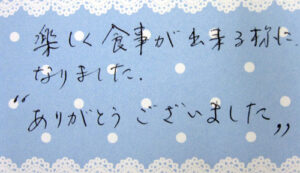 楽しく食事が出来る様に
なりました.
“ありがとうございました„